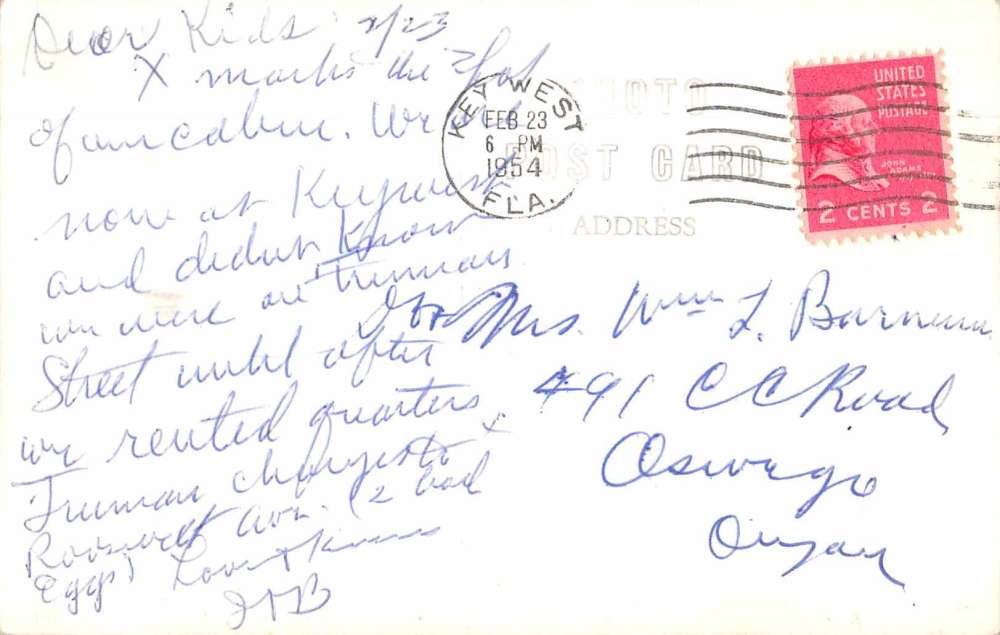 Dear Kids 2/23
X marks the spot
of our cabin. We
now at Keywest
and didnt Know
we were on Truman
Street until after
we rented quarters.
Truman changes to
Roosevelt Ave. (2 bad
Eggs) Love &
KEY WEST
FEB 23
6 PM
1954
FLA.
PHOTO
POST CARD
ADDRESS
UNITED
STATES
POSTAGE
JOHN
ADAMS
2 CENTS 2
Mrs. Wm L.
491 CC Road
Oswego
Oregon